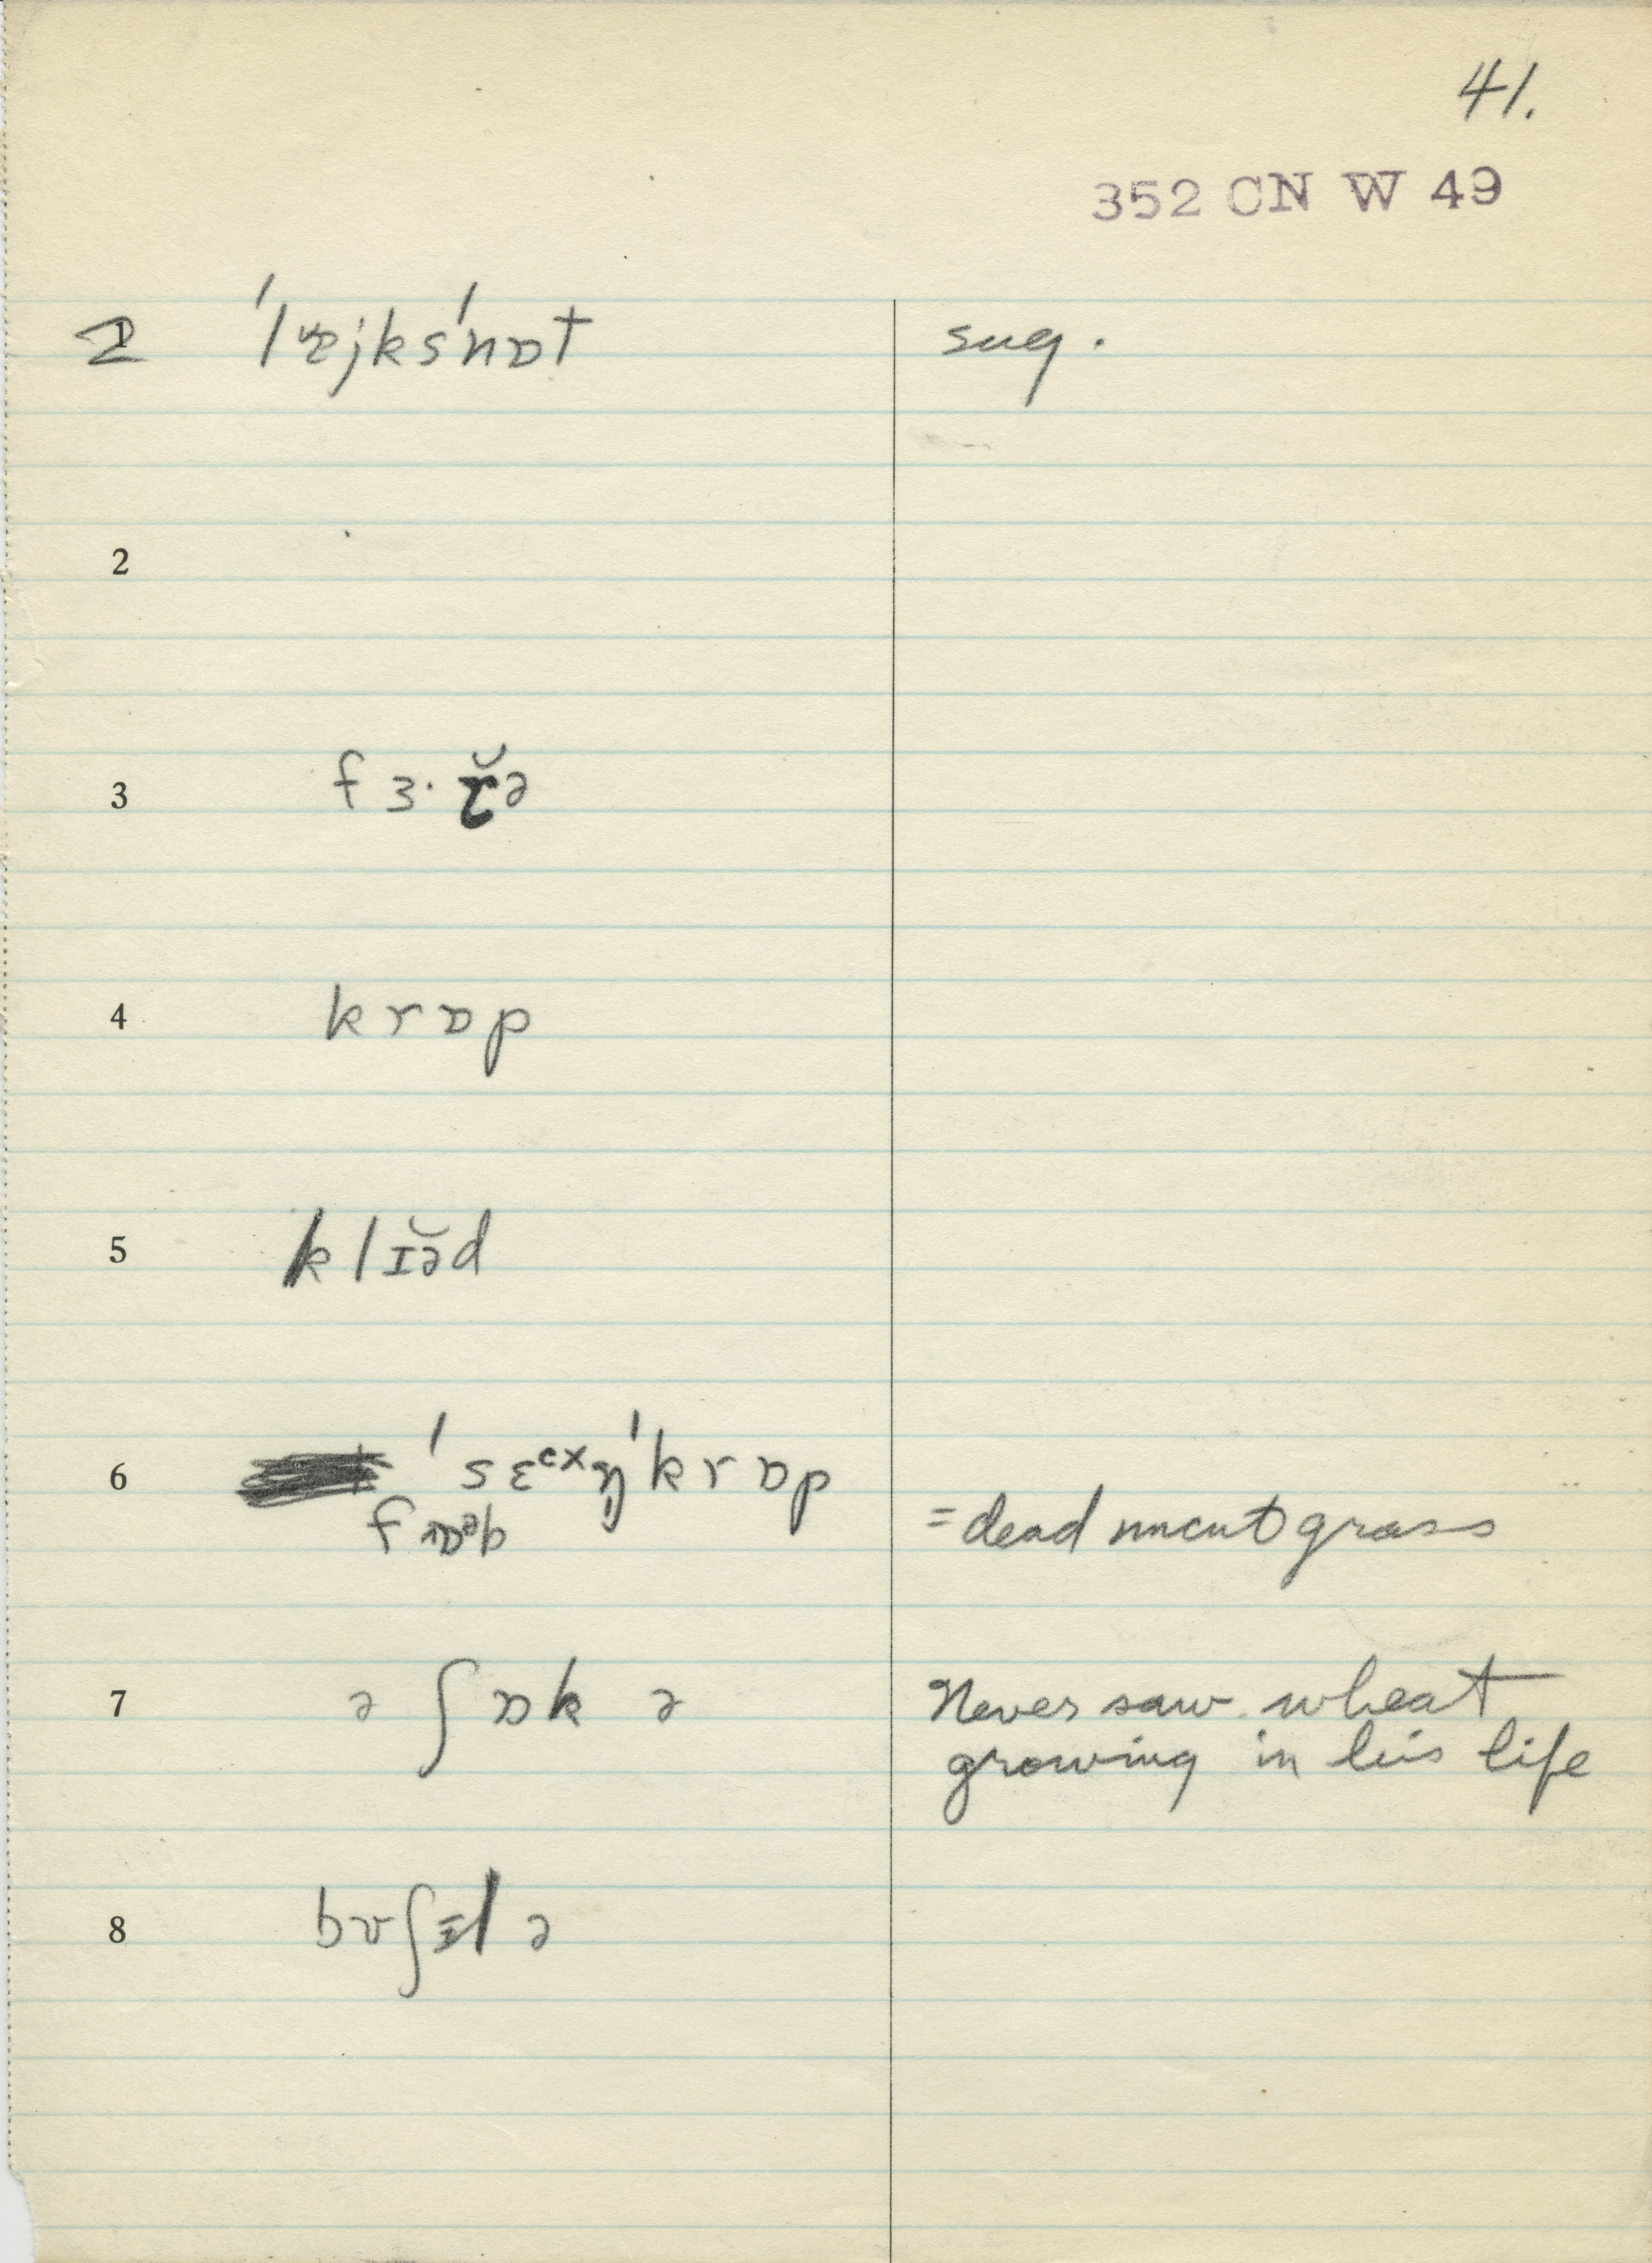 41.
352 CN W 49
2 ˈlɐjksˈnɒt sug.
2
3 fɜ·ɾ̆ə
4 krɒp
5 klɪə̆d
6 ˈsɛᶜˣŋ̍ˈkrɒp
fɒᵊb = dead uncut grass
7 ə ʃɒk ə Never saw wheat
growing in his life
8 bʊʃɪl ə